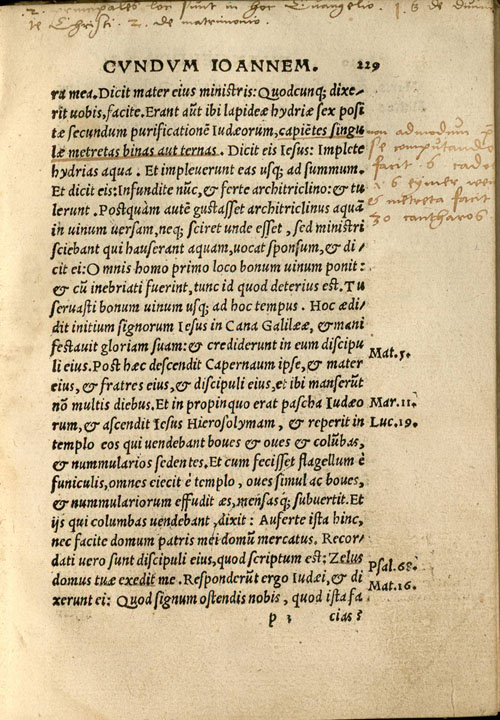 2. principales loci sunt in hoc Euangelio. 1. de diuini
te Christi. 2. de matrimonio.
CVNDVM IOANNEM. 229
ra mea. Dicit mater eius ministris: Quodcunq; dixe/
rit uobis, facite. Erant aūt ibi lapideæ hydriæ sex posi
tæ secundum purificationē Iudæorum, capiētes singu
læ metretas binas aut ternas. Dicit eis Iesus: Implete
hydrias aqua. Et impleuerunt eas usq; ad summum.
Et dicit eis: Infundite nūc, & ferte architriclino: & tu
lerunt. Postquàm autē gustasset architriclinus aquā
in uinum uersam, neq; sciret unde esset, sed ministri
sciebant qui hauserant aquam, uocat sponsum, & di/
cit ei: Omnis homo primo loco bonum uinum ponit:
& cū inebriati fuerint, tunc id quod deterius est. Tu
seruasti bonum uinum usq; ad hoc tempus. Hoc ædi/
dit initium signorum Iesus in Cana Galilææ, & mani
festauit gloriam suam: & crediderunt in eum discipu
li eius. Post hæc descendit Capernaum ipse, & mater
eius, & fratres eius, & discipuli eius, et ibi manserūt
nō multis diebus. Et in propinquo erat pascha Iudæo
rum, & ascendit Iesus Hierosolymam, & reperit in
templo eos qui uendebant boues & oues & colūbas,
& nummularios sedentes. Et cum fecisset flagellum è
funiculis, omnes eiecit è templo, oues simul ac boues,
& nummulariorum effudit æs, mensasq; subuertit. Et
ijs qui columbas uendebant, dixit: Auferte ista hinc,
nec facite domum patris mei domū mercatus. Recor/
dati uero sunt discipuli eius, quod scriptum est: Zelus
domus tuæ exedit me. Responderūt ergo Iudæi, & di
xerunt ei: Quod signum ostendis nobis, quod ista fa
p 3 cias?
non admodum
se computandos
facit 6 cados
6 eymer
metreta facit
30 cantharos
Mat.5.
Mar.11.
Luc.19.
Psal.68.
Mat.16.